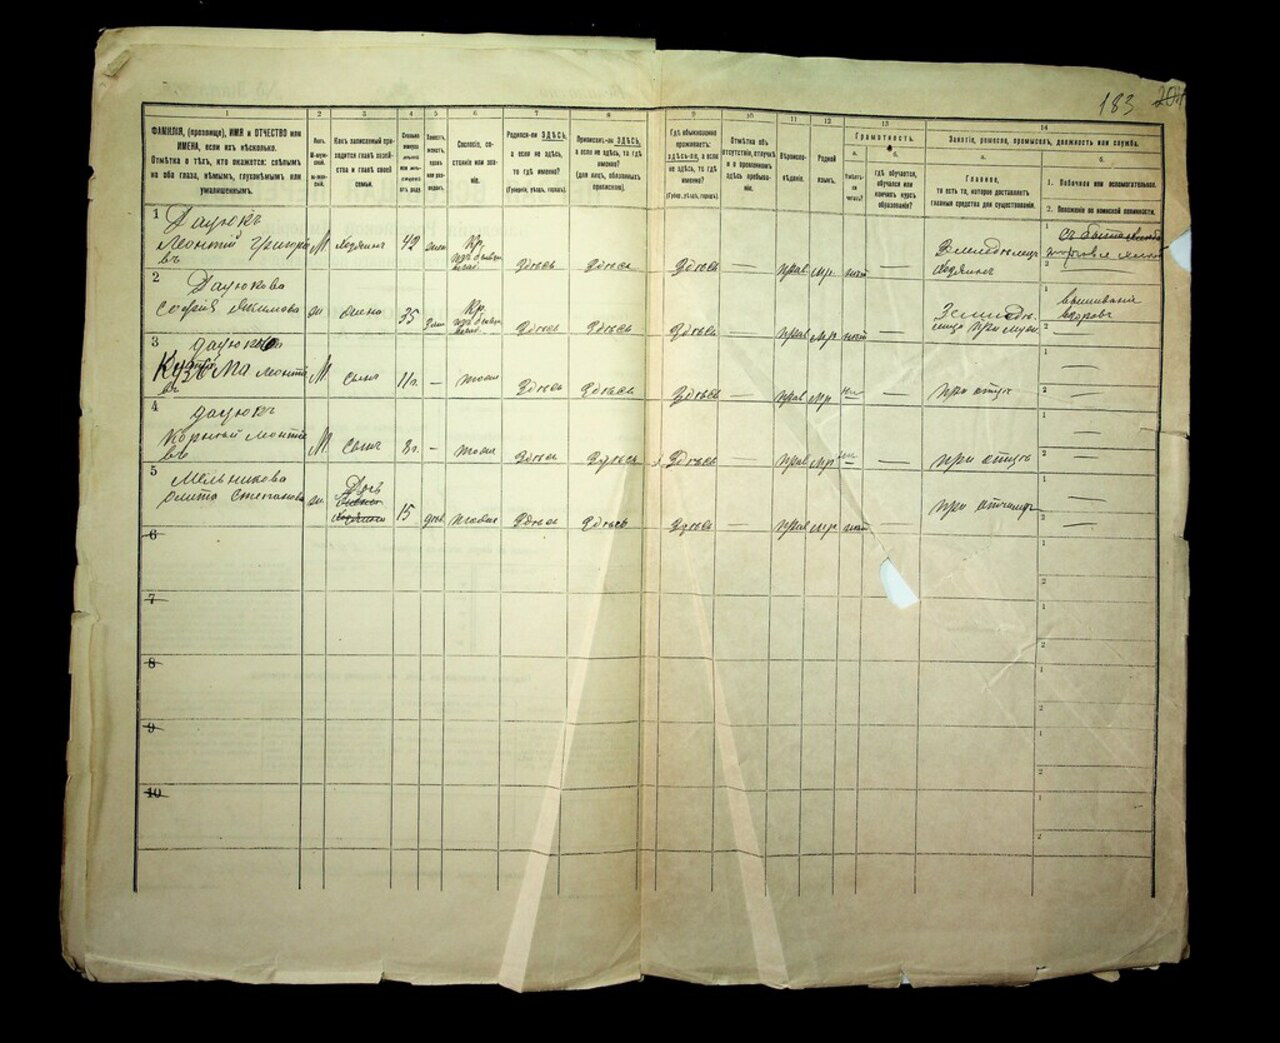 183
204
1
2
3
4
5
6
7
8
9
10
11
12
13
14
ФАМИЛІЯ, (прозвище), ИМЯ и ОТЧЕСТВО или
ИМЕНА, если ихъ нѣсколько.
Отмѣтка о тѣхъ, кто окажется: слѣпымъ
на оба глаза, нѣмымъ, глухонѣмымъ или
умалишеннымъ.
Полъ.
М-муж-
ской.
Ж-жен-
скій.
Какъ записанный при-
ходится главѣ хозяй-
ства и главѣ своей
семьи.
Сословіе, со-
стояніе или зва-
ніе.
Родился-ли ЗДѢСЬ,
а если не здѣсь,
то гдѣ именно?
(Губернія, уѣздъ, городъ).
Приписанъ-ли ЗДѢСЬ,
а если не здѣсь, то гдѣ
именно?
(для лицъ, обязанныхъ
припиской).
Гдѣ обыкновенно
проживаетъ:
здѣсь-ли, а если
не здѣсь, то гдѣ
именно?
(Губер., уѣздъ, городъ).
Отмѣтка объ
отсутствіи, отлучкѣ
и о временномъ
здѣсь пребыва-
ніи.
Вѣроиспо-
вѣданіе.
Родной
языкъ.
Грамотность.
а.
Умѣетъ-
ли
читать?
б.
гдѣ обучается,
обучался или
кончилъ курсъ
образованія?
Занятіе, ремесло, промыселъ, должность или служба.
а.
Главное,
то есть то, которое доставляетъ
главныя средства для существованія.
б.
1. Побочное или вспомогательное.
2. Положеніе по воинской повинности.
1
Дацюкъ
Леонтій Григорье
въ
М
Хозяинъ
42
Кр.
Здѣсь
Здѣсь
Здѣсь
—
прав
мр.
—
Земледѣлецъ
Хозяинъ
1
2
2
Дацюкова
Софія Якимова
ж
жена
35
Кр.
Здѣсь
Здѣсь
Здѣсь
—
прав
мр.
—
1
вышиваніе
2
3
Кузьма Леонтье
въ
М
сынъ
11г.
—
тоже
Здѣсь
Здѣсь
Здѣсь
—
прав
мр
—
при отцѣ
1
—
2
—
4
дацюкъ
Корнѣй Леонтье
въ
М
сынъ
8г.
—
тоже
Здѣсь
Здѣсь
Здѣсь
—
прав
мр
—
при отцѣ
1
—
2
—
5
Мельникова
Степанова
ж.
Дочь
15
тоже
Здѣсь
Здѣсь
Здѣсь
—
прав
мр
—
при отчимѣ
1
—
2
—
6
1
2
7
1
2
8
1
2
9
1
2
10
1
2